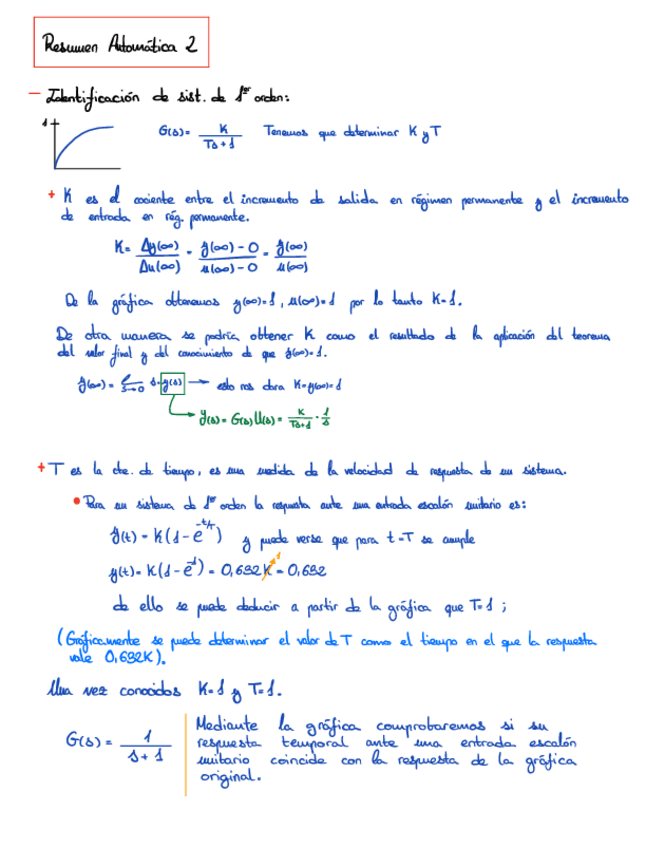 Resumen Automática 2
- Identificación de sist. de 1er orden:
1
G(s) = K / (Ts + 1) Tenemos que determinar K y T
+ K es el cociente entre el incremento de salida en régimen permanente y el incremento
de entrada en rég. permanente.
K = Δy(∞) / Δu(∞) = (y(∞) - 0) / (u(∞) - 0) = y(∞) / u(∞)
De la gráfica obtenemos y(∞)=1, u(∞)=1 por lo tanto K=1.
De otra manera se podría obtener K como el resultado de la aplicación del teorema
del valor final y del conocimiento de que y(∞)=1.
y(∞) = lim s→0 s·y(s) → esto nos dará K=y(∞)=1
y(s) = G(s)U(s) = K / (Ts+1) · 1/s
+ T es la cte. de tiempo, es una medida de la velocidad de respuesta de un sistema.
• Para un sistema de 1er orden la respuesta ante una entrada escalón unitario es:
y(t) = K(1 - e^-t/T) y puede verse que para t=T se cumple
y(t) = K(1 - e^-1) = 0,632K = 0,632
1
de ello se puede deducir a partir de la gráfica que T=1;
(Gráficamente se puede determinar el valor de T como el tiempo en el que la respuesta
vale 0,632K).
Una vez conocidos K=1 y T=1.
G(s) = 1 / (s + 1)
Mediante la gráfica comprobaremos si su
respuesta temporal ante una entrada escalón
unitario coincide con la respuesta de la gráfica
original.